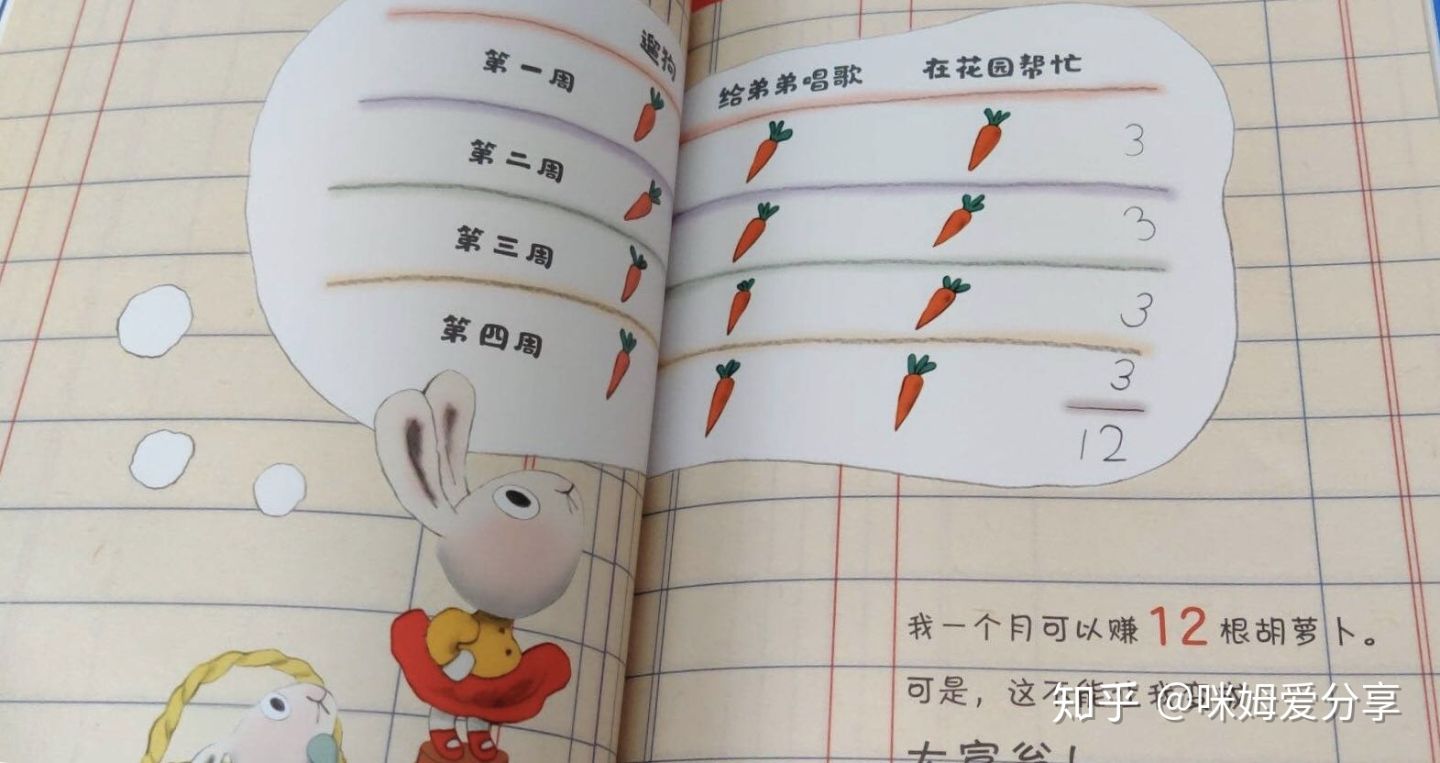 遛狗 给弟弟唱歌 在花园帮忙
第一周 3
第二周 3
第三周 3
第四周 3
12
我一个月可以赚12根胡萝卜。
可是，这不能
大富翁！
知乎 @咪姆爱分享